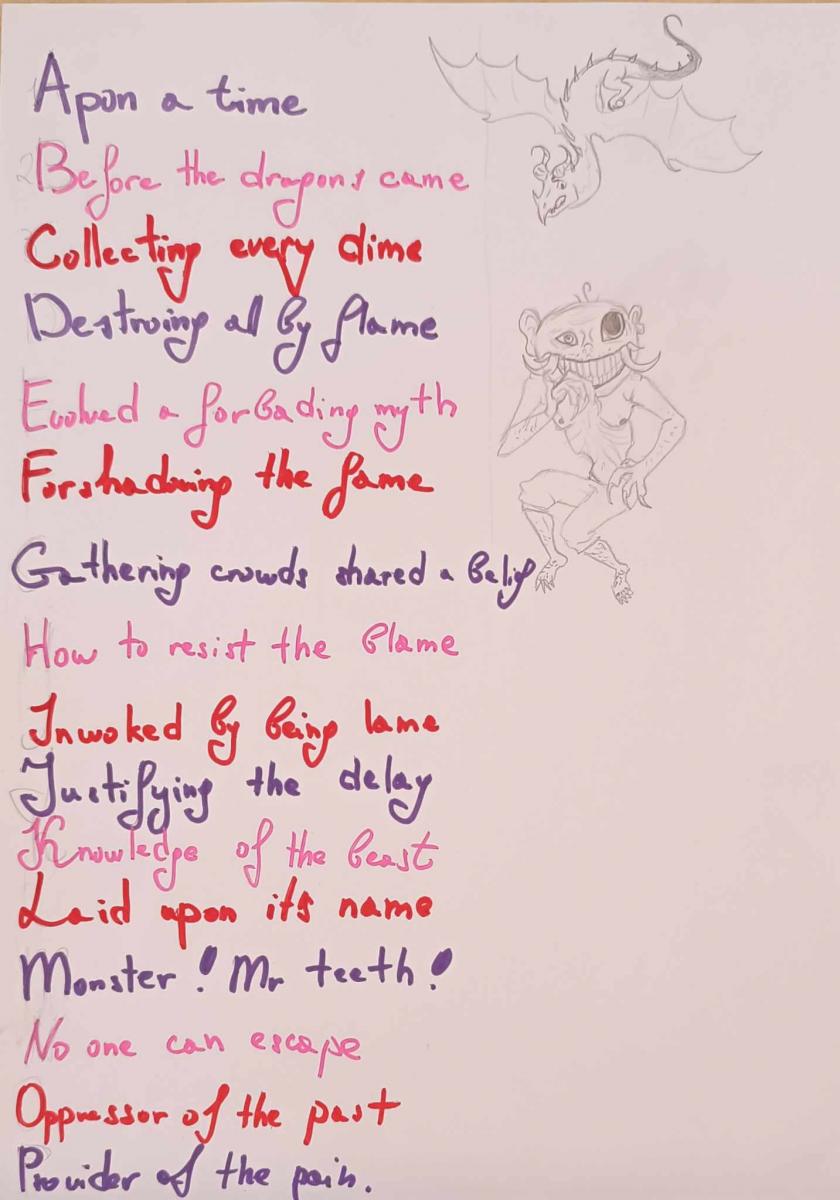 Apon a time
Before the dragons came
Collecting every dime
Destroing all by flame
Evolved a forbading myth
Forshadowing the fame
Gathering crowds shared a belif
How to resist the blame
Inwoked by being lame
Justifying the delay
Knowledge of the beast
Laid upon its name
Monster! Mr teeth!
No one can escape
Oppressor of the past
Provider of the pain.